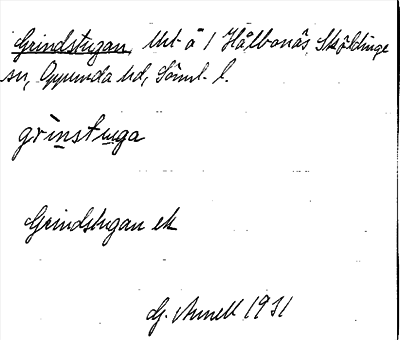 Grindstugan, Utt å 1 Hälbonäs, Sköldinge
sn, Oppunda hd, Söml. l.
grinstuga
Grindstugan ek
G. Annell 1931